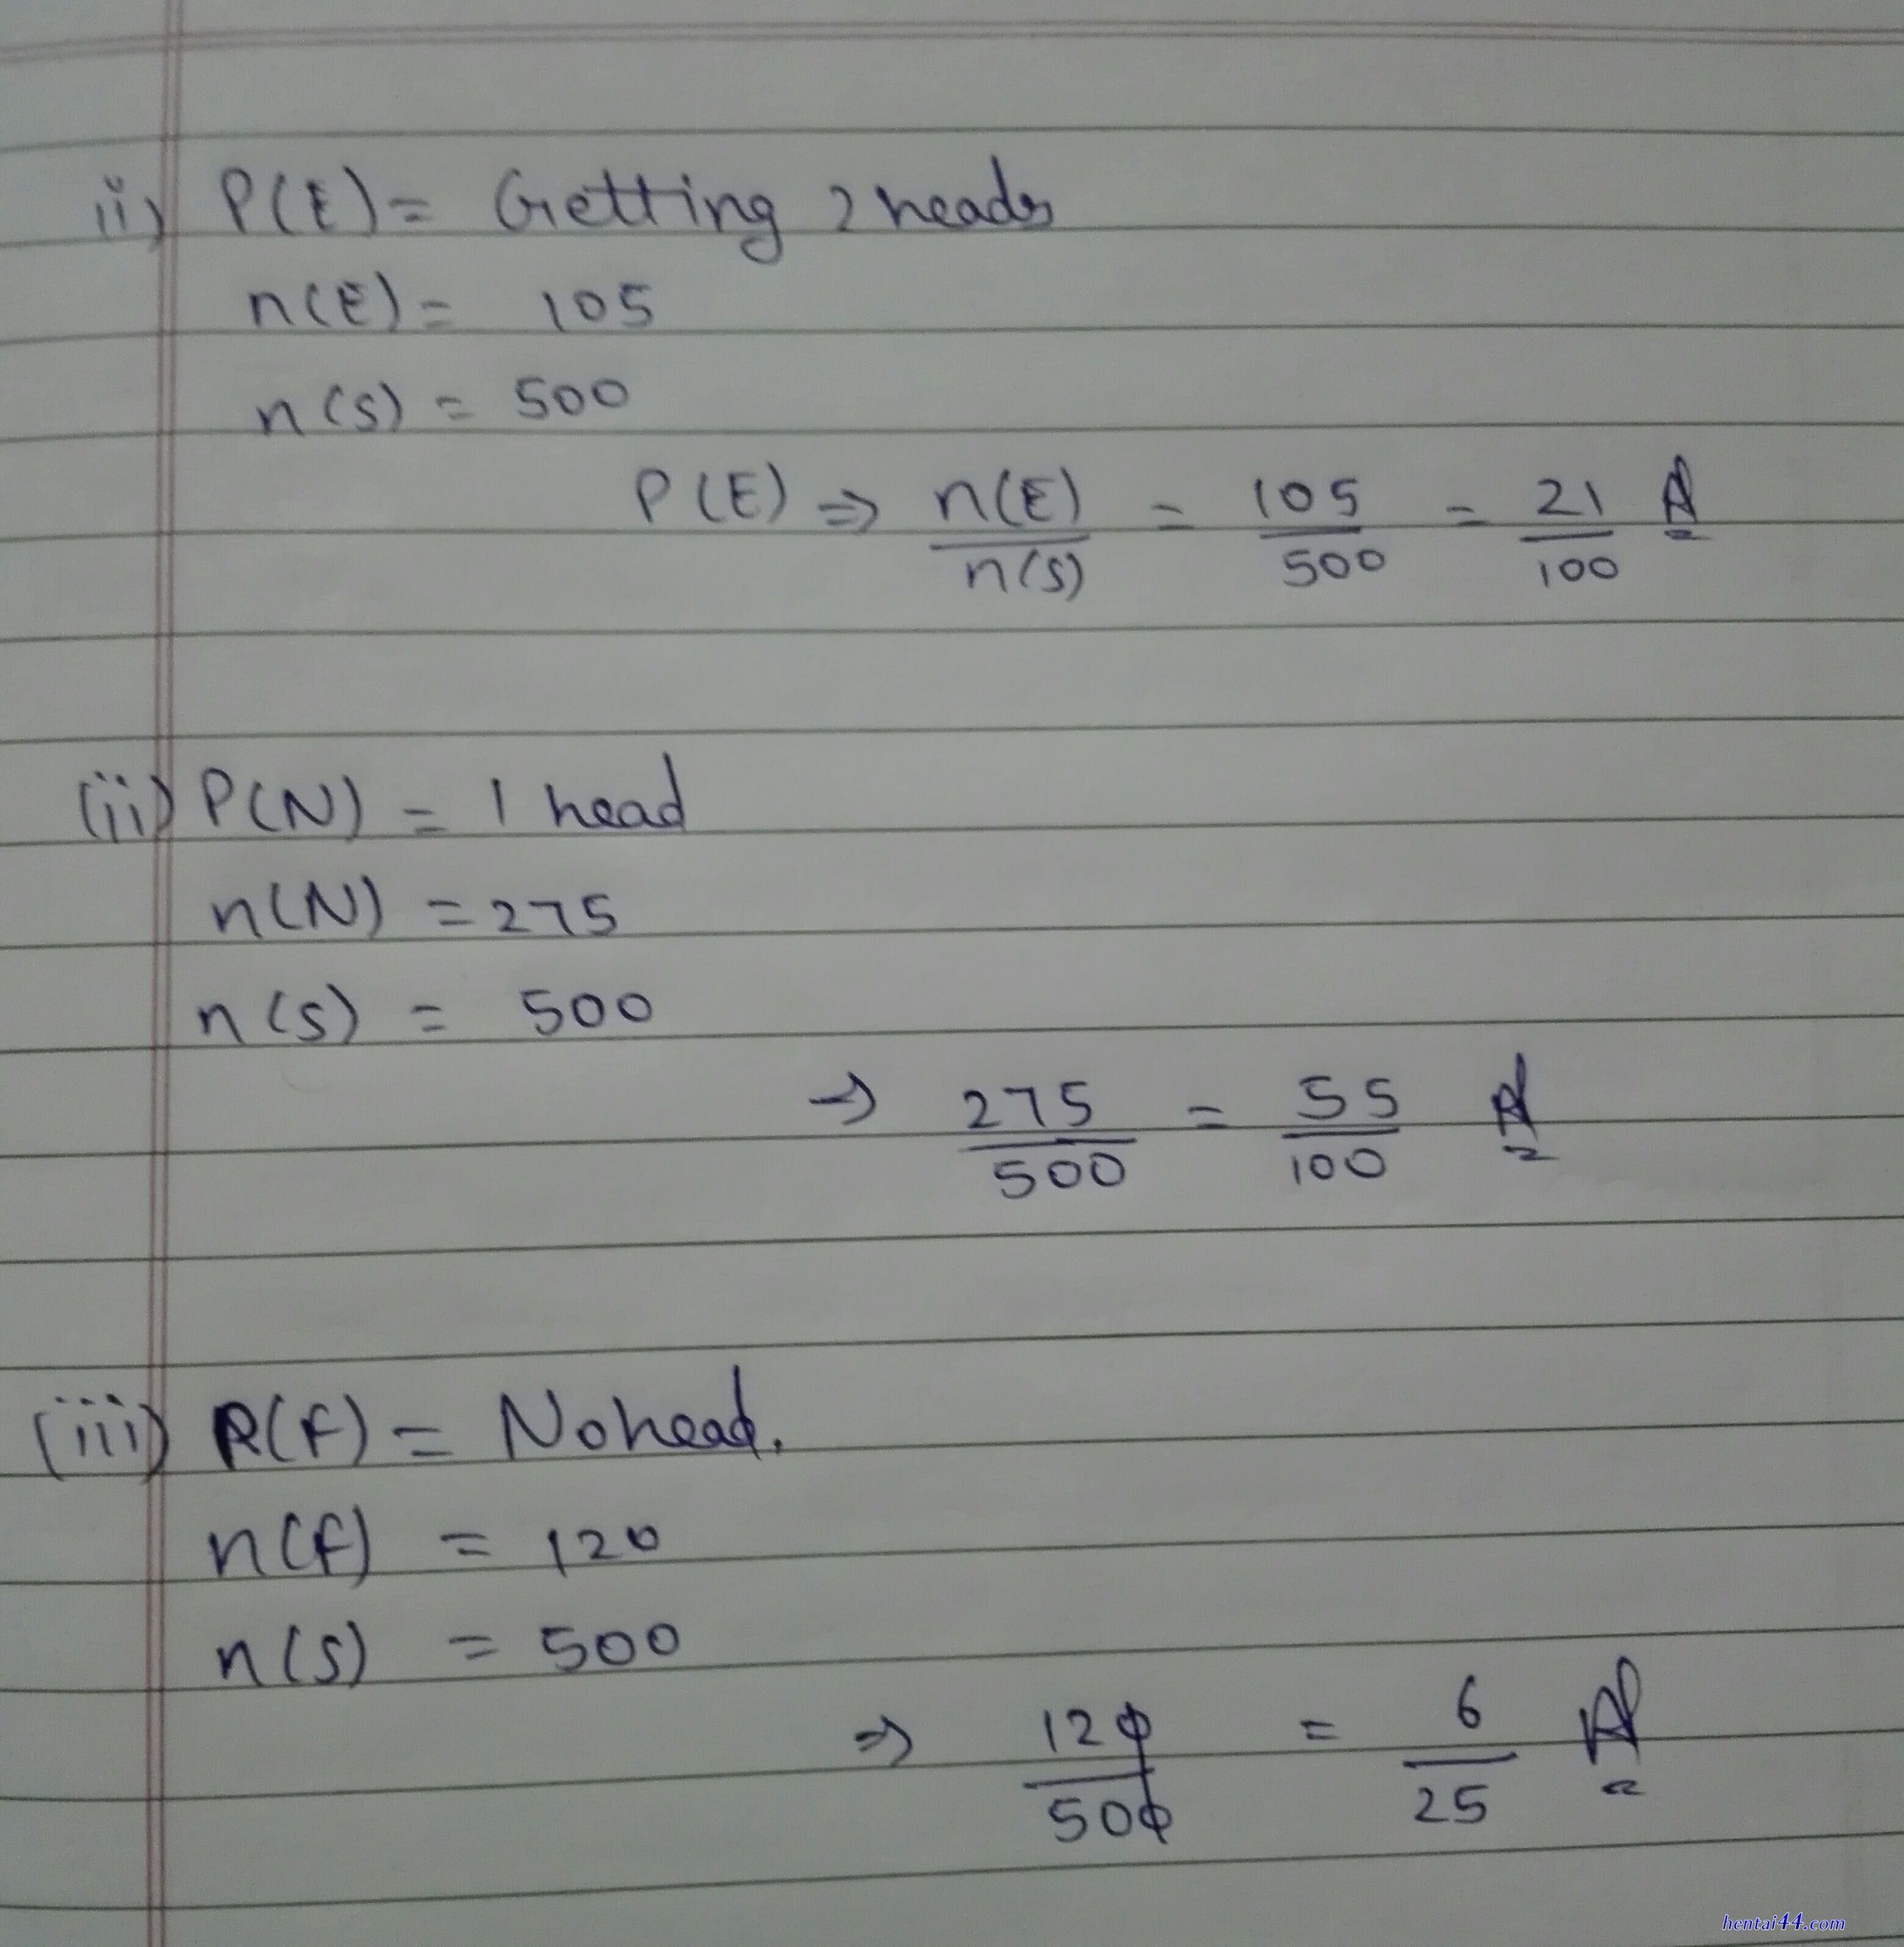 ii) P(E) = Getting 2 heads
n(E) = 105
n(S) = 500
P(E) ⇒ n(E)/n(S) = 105/500 = 21/100 A
(ii) P(N) = 1 head
n(N) = 275
n(S) = 500
→ 275/500 = 55/100 A
(iii) P(F) = No head.
n(F) = 120
n(S) = 500
⇒ 120/500 = 6/25 A
hentai44.com